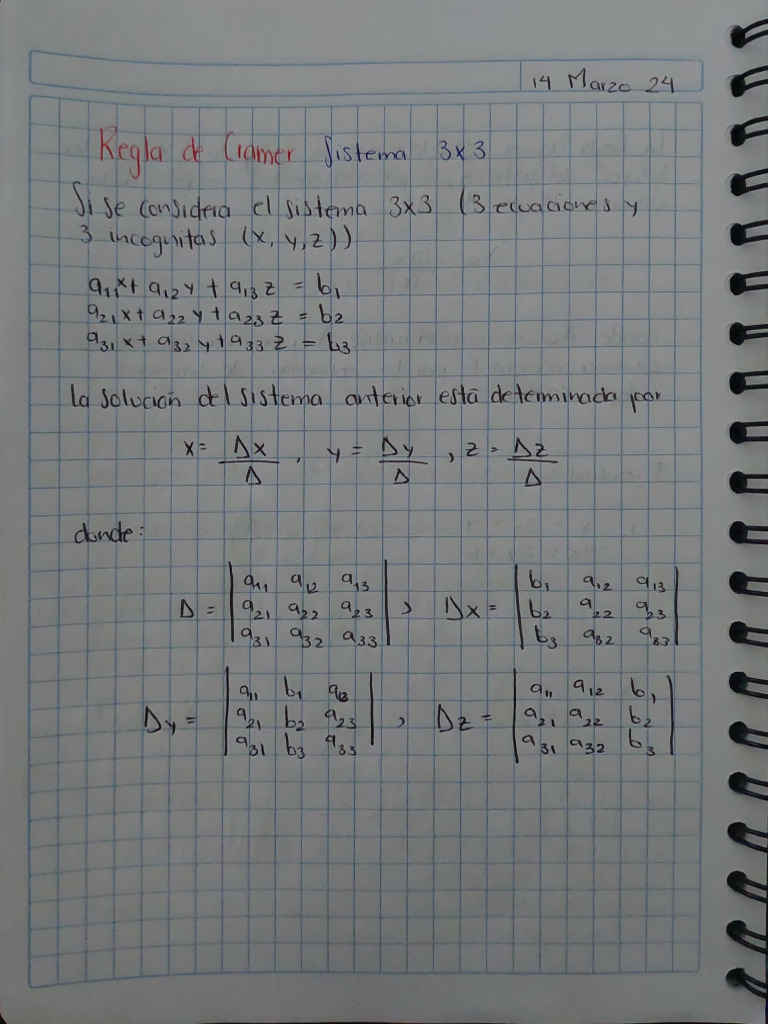 14 Marzo 24
Regla de Cramer Sistema 3x3
Si se considera el sistema 3x3 (3 ecuaciones y
3 incognitas (x, y, z))
a₁₁x + a₁₂y + a₁₃z = b₁
a₂₁x + a₂₂y + a₂₃z = b₂
a₃₁x + a₃₂y + a₃₃z = b₃
la solución del sistema anterior está determinada por
x = Δx/Δ , y = Δy/Δ , z = Δz/Δ
donde:
Δ = | a₁₁ a₁₂ a₁₃ | , Δx = | b₁ a₁₂ a₁₃ |
| a₂₁ a₂₂ a₂₃ | | b₂ a₂₂ a₂₃ |
| a₃₁ a₃₂ a₃₃ | | b₃ a₃₂ a₃₃ |
Δy = | a₁₁ b₁ a₁₃ | , Δz = | a₁₁ a₁₂ b₁ |
| a₂₁ b₂ a₂₃ | | a₂₁ a₂₂ b₂ |
| a₃₁ b₃ a₃₃ | | a₃₁ a₃₂ b₃ |